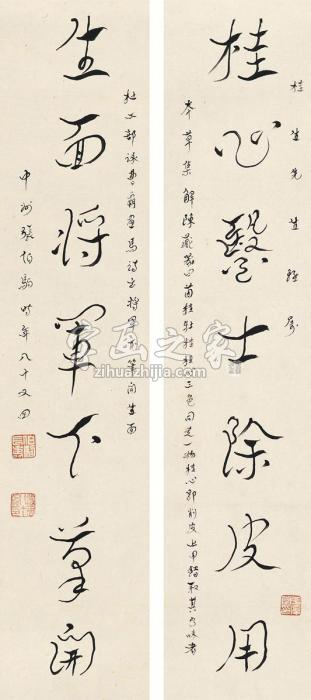 桂生先生雅屬
桂心醫士除皮用
本草集解陳藏器曰菌桂牡桂桂心三色同是一物桂心即削皮上甲錯取其多味者
杜工部詠曹霸畫馬詩云將軍下筆開生面
生面將軍下筆開
中州張伯駒時年八十又四
字画之家
zihuazhijia.com